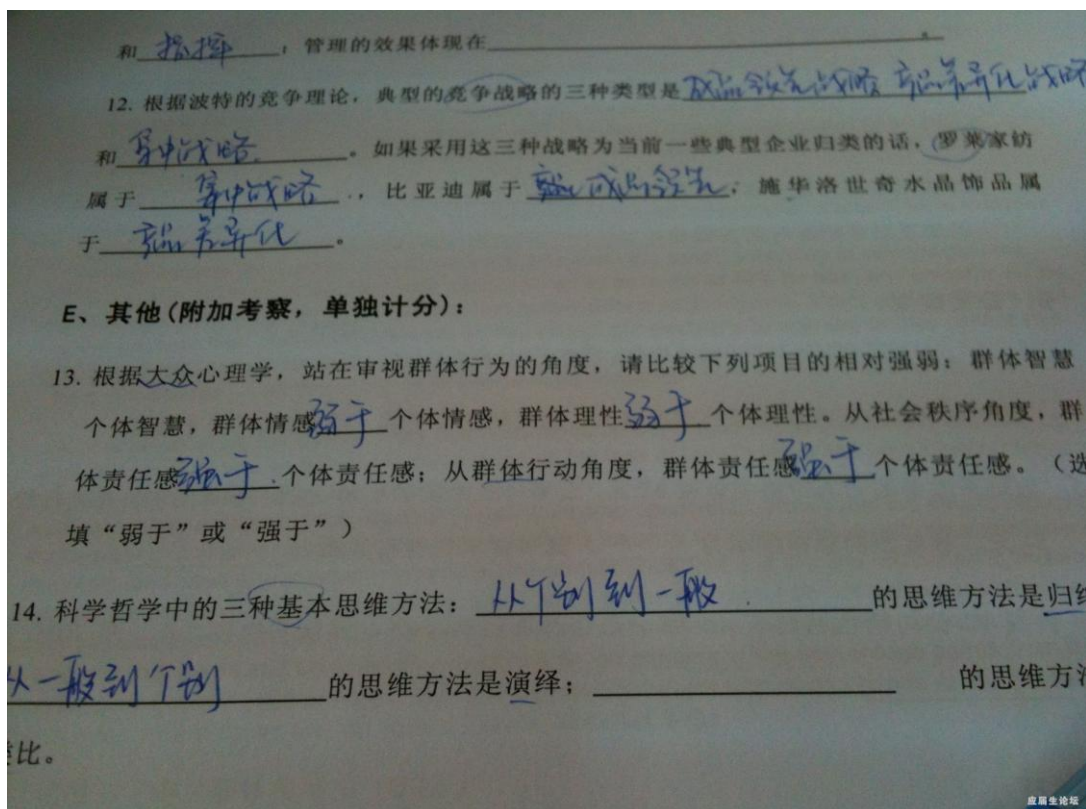 和 指挥 ；管理的效果体现在 。
12. 根据波特的竞争理论，典型的竞争战略的三种类型是 成品领先战略 产品差异化战略
和 集中战略 。如果采用这三种战略为当前一些典型企业归类的话，罗莱家纺
属于 集中战略 ，比亚迪属于 成品领先；施华洛世奇水晶饰品属
于 产品差异化 。
E、其他(附加考察，单独计分)：
13. 根据大众心理学，站在审视群体行为的角度，请比较下列项目的相对强弱：群体智慧
个体智慧，群体情感弱于个体情感，群体理性弱于个体理性。从社会秩序角度，群
体责任感强于个体责任感；从群体行动角度，群体责任感强于个体责任感。（选
填“弱于”或“强于”）
14. 科学哲学中的三种基本思维方法： 从个别到一般 的思维方法是归
从一般到个别 的思维方法是演绎； 的思维方
类比。
应届生论坛